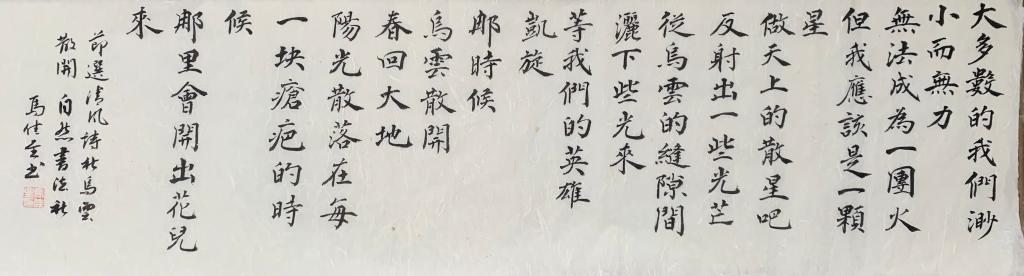 大多數的我們渺
小而無力
無法成為一團火
但我應該是一顆
星
做天上的散星吧
反射出一些光芒
從烏雲的縫隙間
灑下些光來
等我們的英雄
凱旋
那時候
烏雲散開
春回大地
陽光散落在每
一块瘡疤的時
候
那里會開出花兒
來
節選清风詩社烏雲
散開 自然書法社
馬佳書